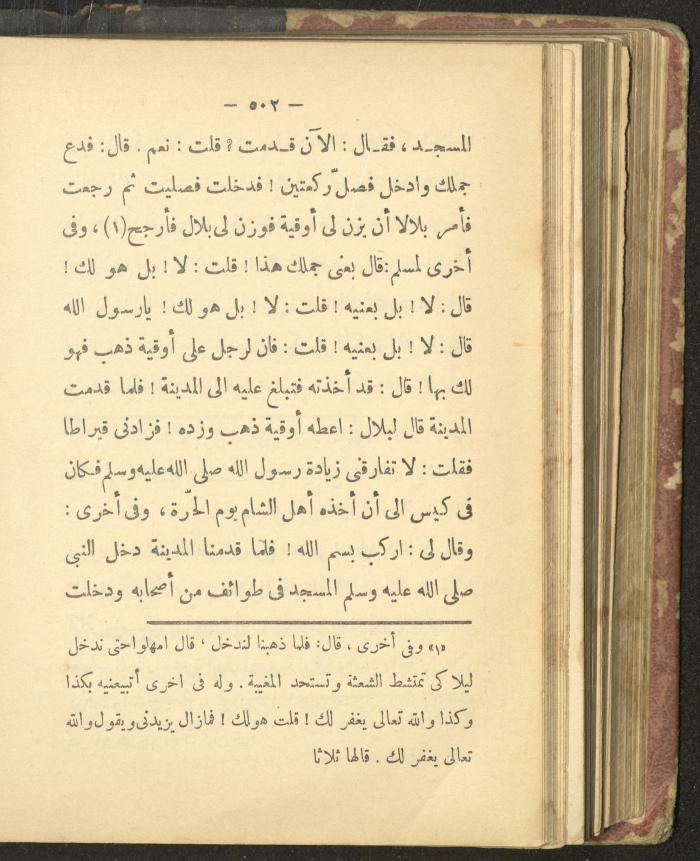 — ٥٠٢ —
المسجد ، فقال : الآن قدمت ? قلت : نعم . قال : فدع
جملك وادخل فصلّ ركعتين ! فدخلت فصليت ثم رجعت
فأمر بلالا أن يزن لى أوقية فوزن لى بلال فأرجح(١) ، وفى
أخرى لمسلم : قال بعنى جملك هذا ! قلت : لا ! بل هو لك !
قال : لا ! بل بعنيه ! قلت : لا ! بل هو لك ! يارسول الله
قال : لا ! بل بعنيه ! قلت : فان لرجل على أوقية ذهب فهو
لك بها ! قال : قد أخذته فتبلغ عليه الى المدينة ! فلما قدمت
المدينة قال لبلال : اعطه أوقية ذهب وزده ! فزادنى قيراطا
فقلت : لا تفارقنى زيادة رسول الله صلى الله عليه وسلم فكان
فى كيس الى أن أخذه أهل الشام يوم الحرّة ، وفى أخرى :
وقال لى : اركب بسم الله ! فلما قدمنا المدينة دخل النبى
صلى الله عليه وسلم المسجد فى طوائف من أصحابه ودخلت
«١» وفى أخرى ، قال : فلما ذهبنا لندخل ، قال امهلوا حتى ندخل
ليلا كى تمتشط الشعثة وتستحد المغيبة . وله فى اخرى أتبيعنيه بكذا
وكذا والله تعالى يغفر لك ! قلت هولك ! فمازال يزيدنى ويقول والله
تعالى يغفر لك . قالها ثلاثا